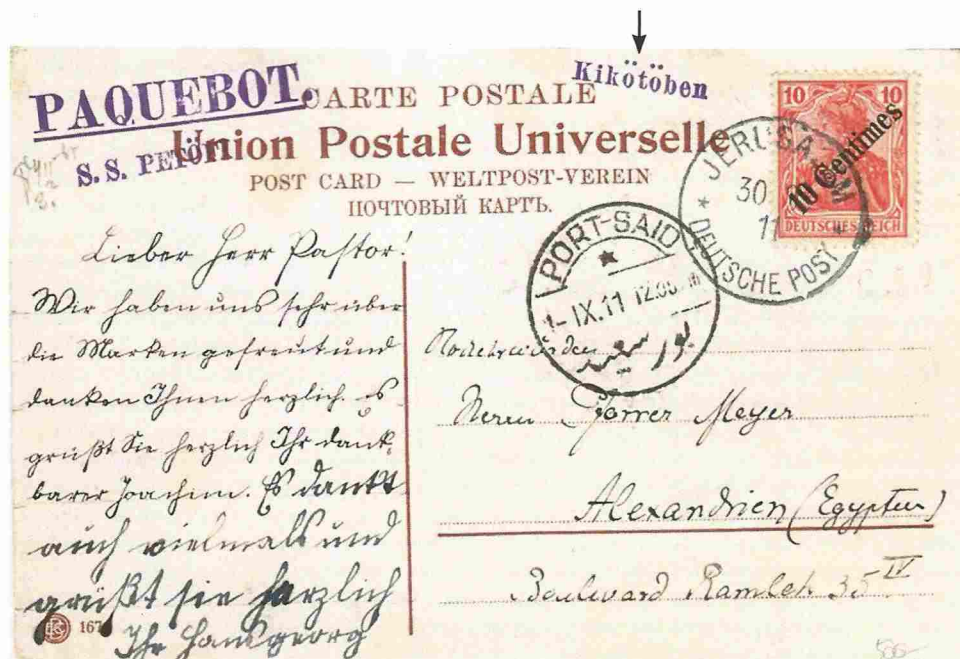 PAQUEBOT.
Kikötöben
CARTE POSTALE
S. S. PETÖFI
Union Postale Universelle
POST CARD — WELTPOST-VEREIN
ПОЧТОВЫЙ КАРТЪ.
10 10
10 Centimes
DEUTSCHES REICH
JERUSALEM
30
11
* DEUTSCHE POST *
PORT-SAID
1-IX.11 12.
بور سعيد
Lieber Herr Pastor!
Wir haben uns sehr über
die Marken gefreut und
danken Ihnen herzlich. Es
grüßt Sie herzlich Ihr dank-
barer Joachim. Es dankt
auch vielmals und
grüßt sie herzlich
Ihr Hansgeorg
Herrn Pfarrer Meyer
Alexandrien (Egypten)
Boulevard Ramleh 35 IV
167